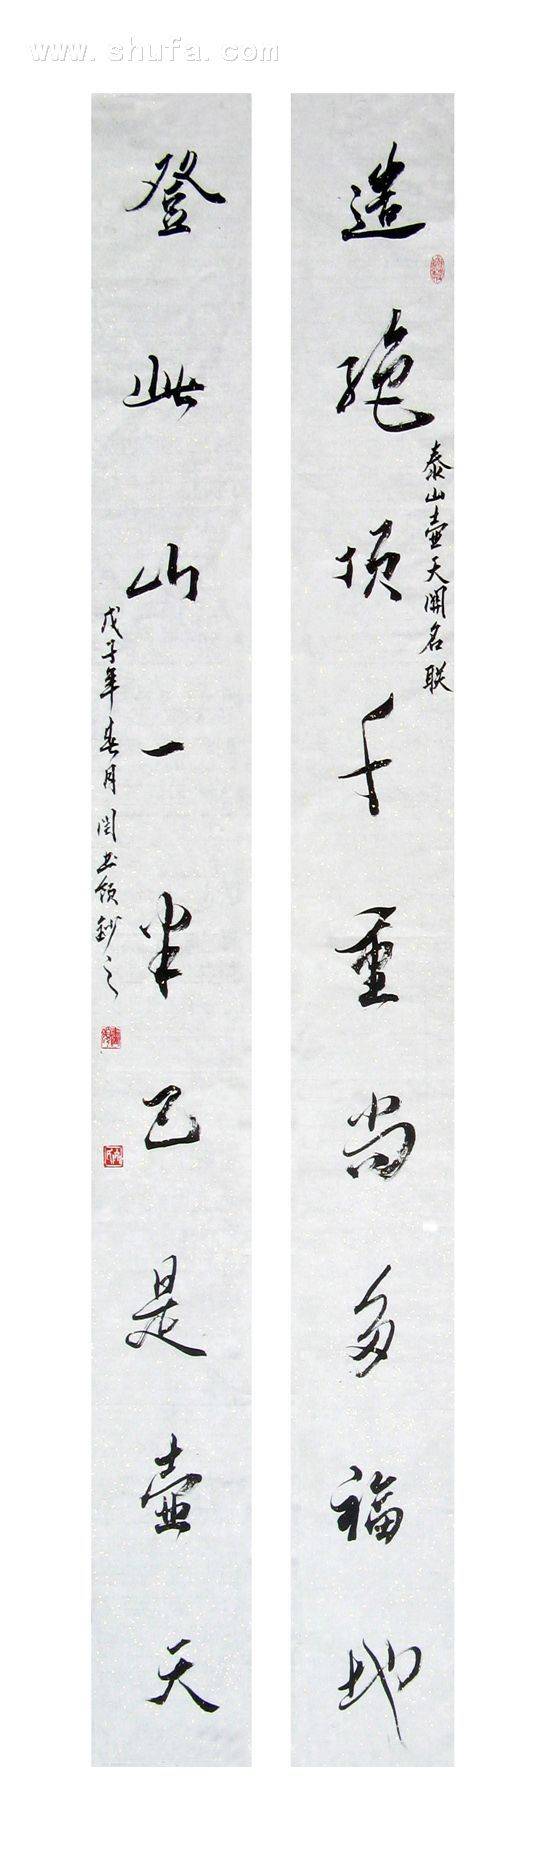 www.shufa.com
造絶頂千重尚多福地
泰山壺天閣名联
登此山一半已是壺天
戊子年春月闫
鈔之